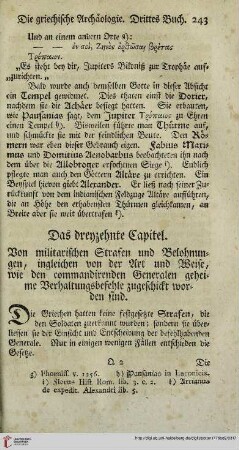 Die griechische Archäologie. Drittes Buch. 243
Und an einem andern Orte g):
Τρόπαιον.
„Es steht bey dir, Jupiters Bildniß zur Trophäe auf-
zurichten."
Bald wurde auch demselben Gotte in dieser Absicht
ein Tempel gewidmet. Dies thaten einst die Dorier,
nachdem sie die Achäer besiegt hatten. Sie erbauten,
wie Pausanias sagt, dem Jupiter Τροπαιος zu Ehren
einen Tempel h). Bisweilen führen man Thürme auf,
und schmückten sie mit der feindlichen Beute. Den Rö-
mern war eben dieser Gebrauch eigen. Fabius Maxi-
mus und Domitius Aenobarbus beobachteten ihn nach
dem über die Allobroger erfochtenen Siege i). Endlich
pflegte man auch den Göttern Altäre zu errichten. Ein
Beyspiel hievon giebt Alexander. Er ließ nach seiner Zu-
rückkunft von dem Indianischen Feldzuge Altäre aufführen,
die an Höhe den erhabensten Thürmen gleichkamen, an
Breite aber sie weit übertrafen k).
Das dreyzehnte Capitel.
Von militarischen Strafen und Belohnun-
gen, ingleichen von der Art und Weise,
wie den commandirenden Generalen gehei-
me Verhaltungsbefehle zugeschickt wor-
den sind.
Die Griechen hatten keine festgesetzte Strafen, die
den Soldaten zuerkannt wurden; sondern sie über-
ließen sie der Einsicht und Entscheidung der befehlhabenden
Generale. Nur in einigen wenigen Fällen entschieden die
Gesetze.
Q 2 Die
g) Phoeniss. v. 1256. h) Pausanias in Laconicis.
i) Florus Hist. Rom. lib. 3. c. 2. k) Arrianus
de expedit. Alexandri lib. 5.